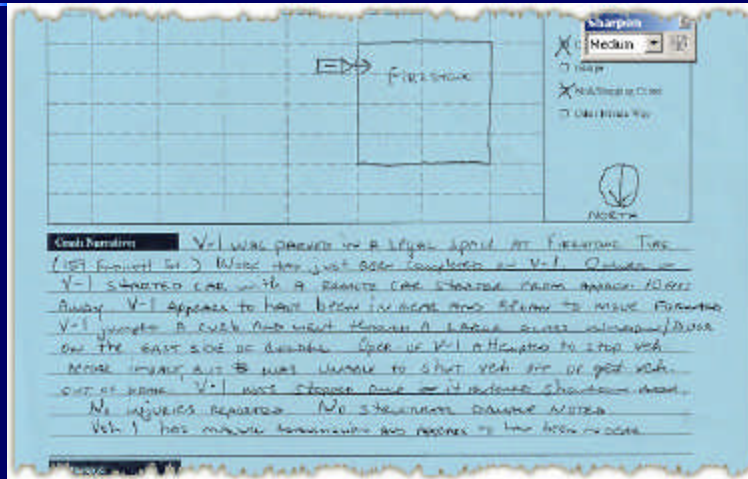 Sharpen
Medium
FIRESTONE
Mall/Shopping Center
Other Private Way
NORTH
Crash Narrative
V-1 WAS PARKED IN A LEGAL SPACE AT FIRESTONE TIRE
WORK HAD JUST BEEN COMPLETED ON V-1. OWNER OF
V-1 STARTED CAR WITH A REMOTE CAR STARTER FROM APPROX
AWAY. V-1 APPEARS TO HAVE BEEN IN GEAR AND BEGAN TO MOVE FORWARD
V-1 JUMPED A CURB AND WENT THROUGH A LARGE GLASS WINDOW/DOOR
ON THE EAST SIDE OF BUILDING. OPER OF V-1 ATTEMPTED TO STOP VEH
BEFORE IMPACT, BUT WAS UNABLE TO SHUT VEH OFF OR GET VEH.
OUT OF GEAR. V-1 WAS STOPPED ONCE IT ENTERED SHOWROOM AREA.
NO INJURIES REPORTED. NO STRUCTURAL DAMAGE NOTED
VEH 1 HAS MANUAL TRANSMISSION AND APPEARS TO HAVE BEEN IN GEAR